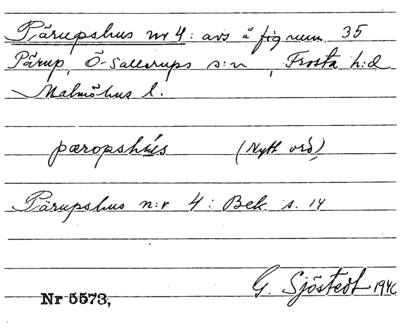 Pärupshus nr 4: avs å fig rum. 35
Pärup, Ö-Sallerups s:n, Frosta h:d
Malmöhus l.
pæropshús (Nytt ord)
Pärupshus n:r 4: Bek s. 14
G. Sjöstedt 1940
Nr 5573,